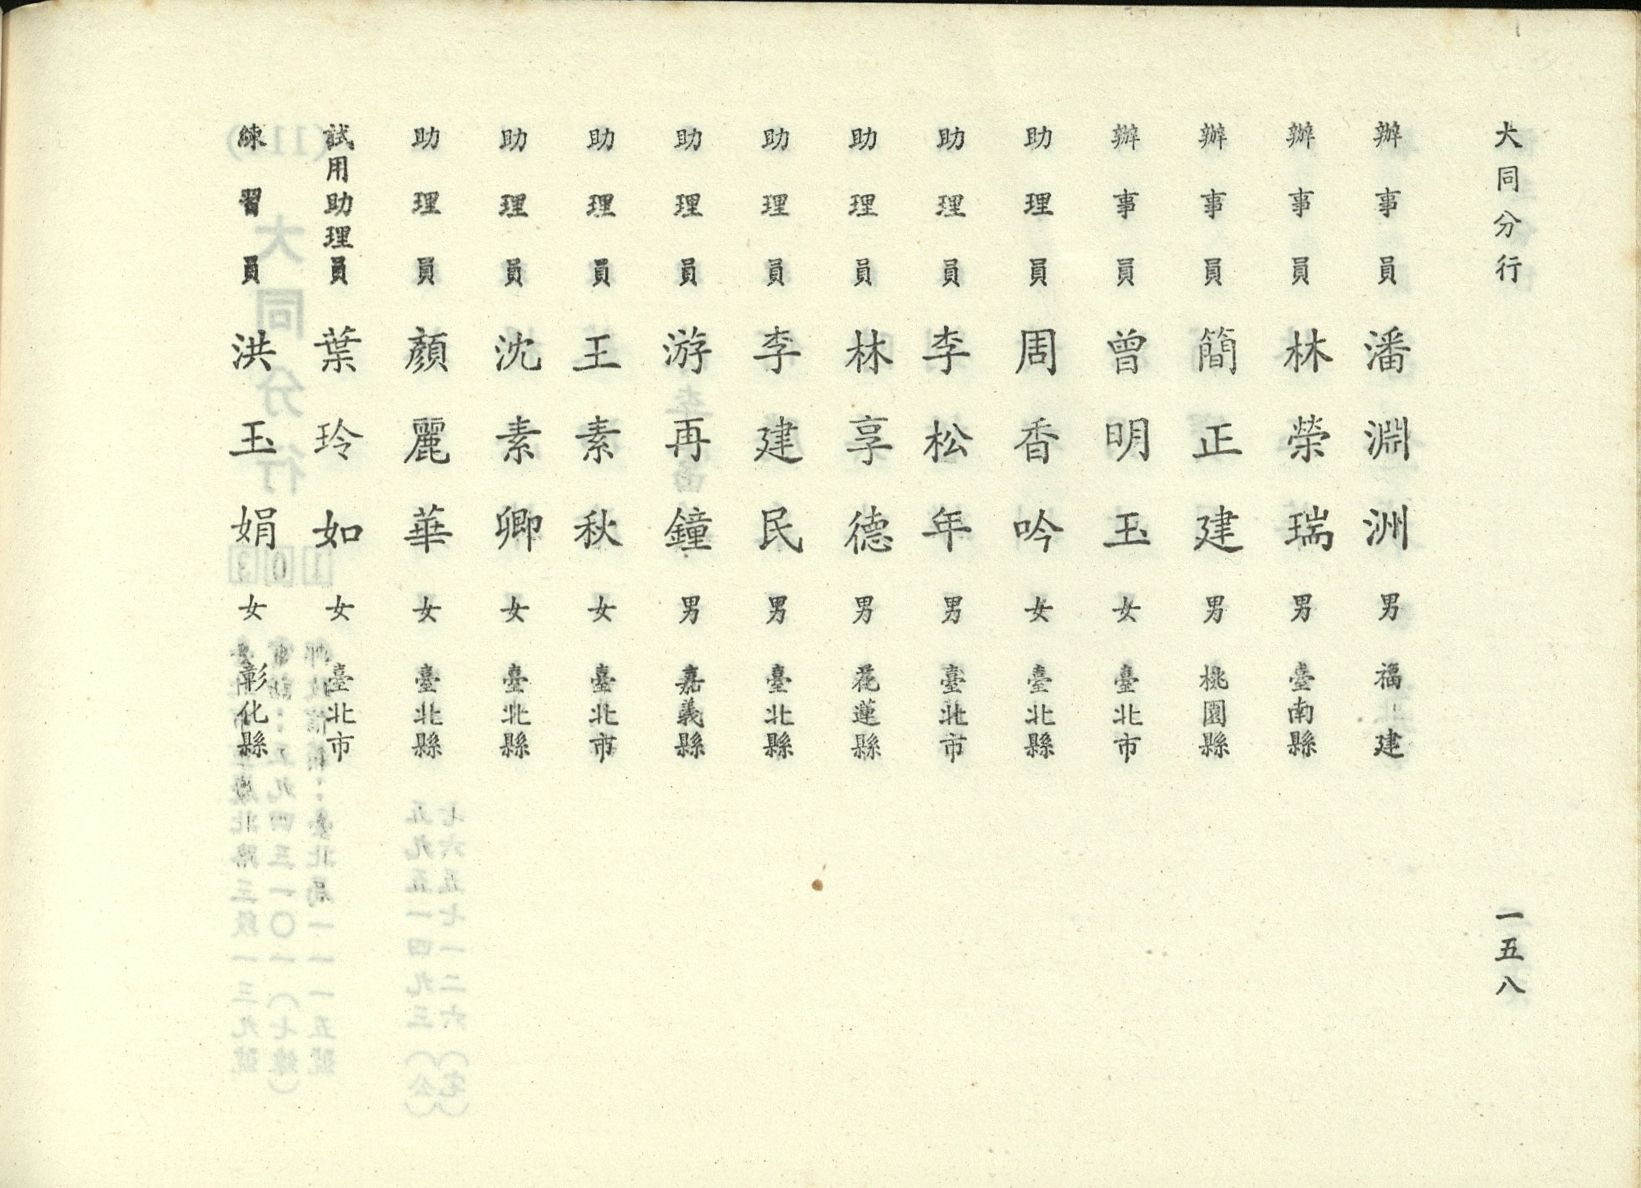 大同分行
一五八
辦事員 潘淵洲 男 福建
辦事員 林榮瑞 男 臺南縣
辦事員 簡正建 男 桃園縣
辦事員 曾明玉 女 臺北市
助理員 周香吟 女 臺北縣
助理員 李松年 男 臺北市
助理員 林享德 男 花蓮縣
助理員 李建民 男 臺北縣
助理員 游再鐘 男 嘉義縣
助理員 王素秋 女 臺北市
助理員 沈素卿 女 臺北縣
助理員 顏麗華 女 臺北縣
試用助理員 葉玲如 女 臺北市
練習員 洪玉娟 女 彰化縣